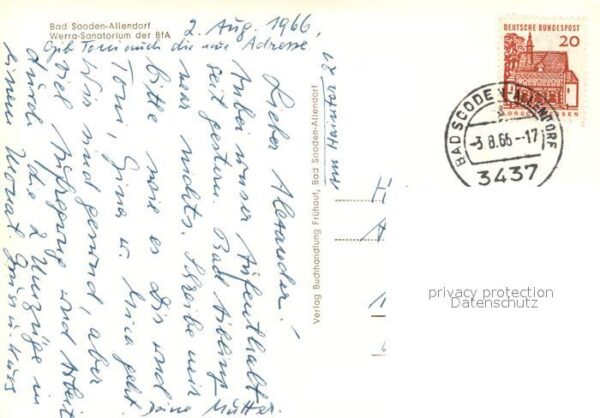 Bad Sooden-Allendorf
Werra-Sanatorium der BfA
2. Aug. 1966
Gib Toni auch die neue Adresse
Lieber Alexander!
Anbei unser Aufenthalt
seit gestern. Bad Aibling
war nichts. Schreibe mir
bitte wie es Dir und
Toni, Gina u. geht.
Wir sind gesund, aber
viel Aufregung und Arbeit
durch die 2 Umzüge in
einem Monat. Gruss u. Kuss
Deine Mutter.
Verlag Buchhandlung Frühauf, Bad Sooden-Allendorf
DEUTSCHE BUNDESPOST
20
LORSCH HESSEN
BAD SOODEN-ALLENDORF
-3.8.66-17
3437
privacy protection
Datenschutz